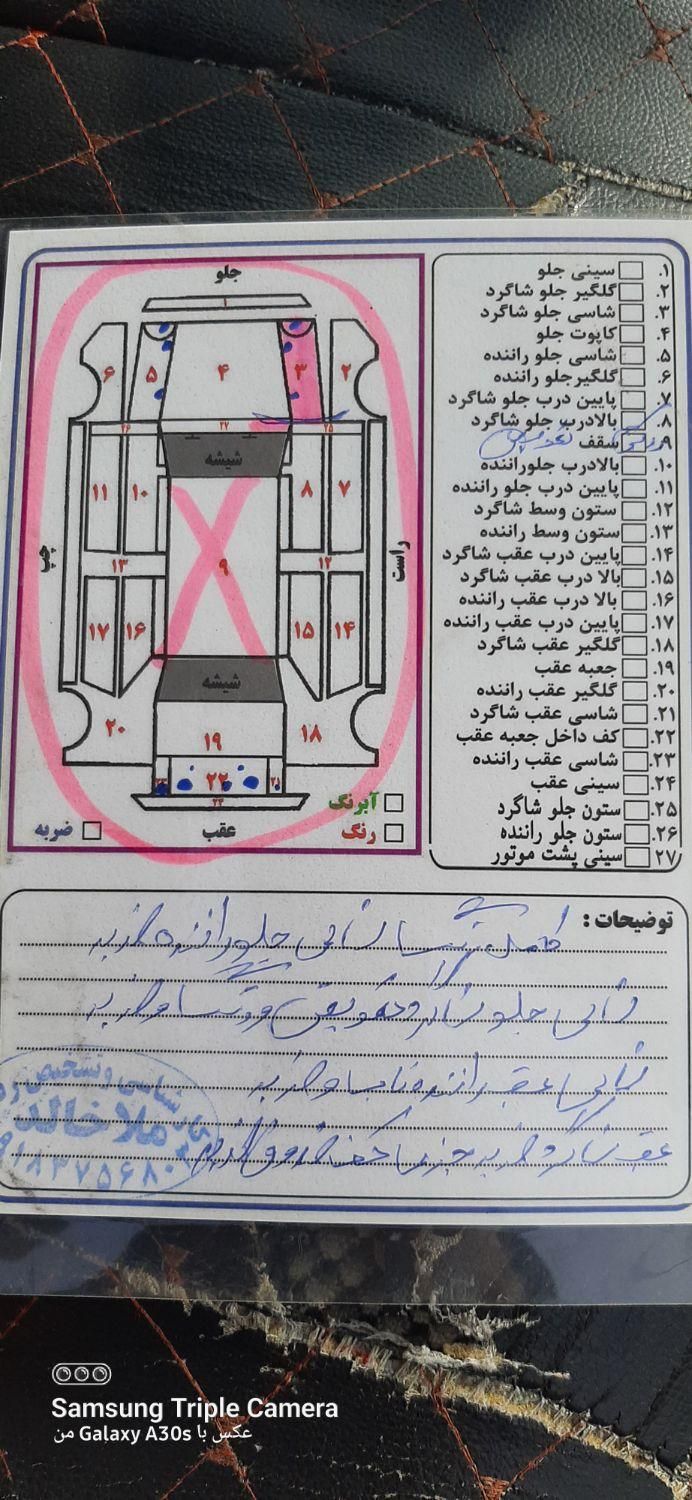 جلو
۱
۶
۵
۴
۳
۲
۲۶
۲۷
۲۵
شیشه
۱۱
۱۰
۸
۷
چپ
راست
۹
۱۳
۱۲
۱۷
۱۶
۱۵
۱۴
شیشه
۲۰
۱۹
۱۸
۲۲
۲۴
ضربه
عقب
آبرنگ
رنگ
۱. سینی جلو
۲. گلگیر جلو شاگرد
۳. شاسی جلو شاگرد
۴. کاپوت جلو
۵. شاسی جلو راننده
۶. گلگیرجلو راننده
۷. پایین درب جلو شاگرد
۸. بالادرب جلو شاگرد
۹. سقف
۱۰. بالادرب جلوراننده
۱۱. پایین درب جلو راننده
۱۲. ستون وسط شاگرد
۱۳. ستون وسط راننده
۱۴. پایین درب عقب شاگرد
۱۵. بالا درب عقب شاگرد
۱۶. بالا درب عقب راننده
۱۷. پایین درب عقب راننده
۱۸. گلگیر عقب شاگرد
۱۹. جعبه عقب
۲۰. گلگیر عقب راننده
۲۱. شاسی عقب شاگرد
۲۲. کف داخل جعبه عقب
۲۳. شاسی عقب راننده
۲۴. سینی عقب
۲۵. ستون جلو شاگرد
۲۶. ستون جلو راننده
۲۷. سینی پشت موتور
توضیحات :
جلو راننده ضربه
جلو شاگرد تعویض
عقب راننده
عقب شاگرد ضربه جزیی کف صندوق
ملا خالد
Samsung Triple Camera
عکس با Galaxy A30s من